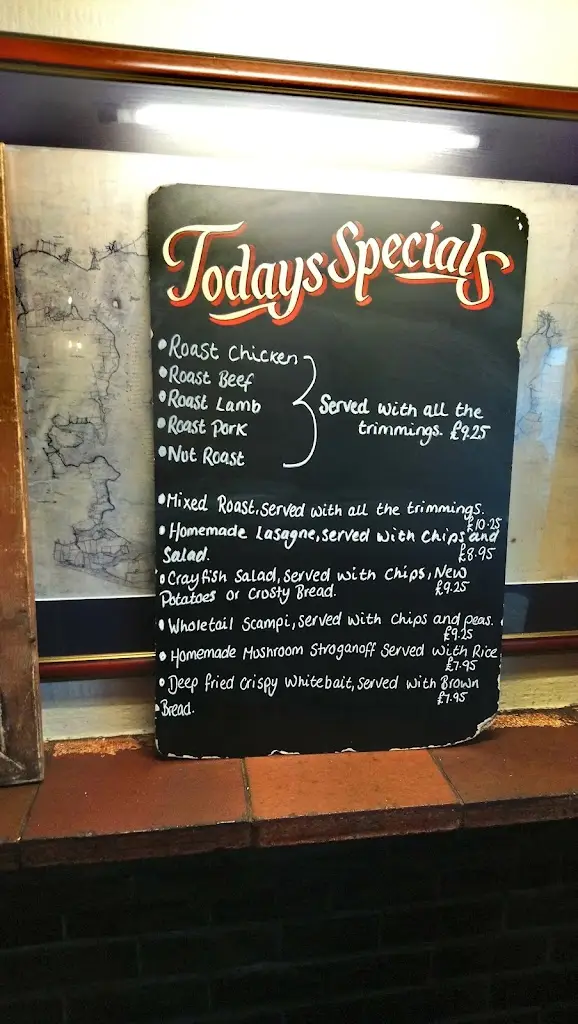 Todays Specials
• Roast Chicken
• Roast Beef
• Roast Lamb
• Roast Pork
• Nut Roast
Served with all the
trimmings. £9.25
• Mixed Roast, served with all the trimmings.
£10.25
• Homemade Lasagne, served with chips and
Salad.
£8.95
• Crayfish Salad, served with chips, New
Potatoes or Crosty Bread.
£9.25
• Wholetail Scampi, served with chips and peas.
£9.25
• Homemade Mushroom Stroganoff Served with Rice
£7.95
• Deep fried Crispy Whitebait, served with Brown
£7.95
• Bread.